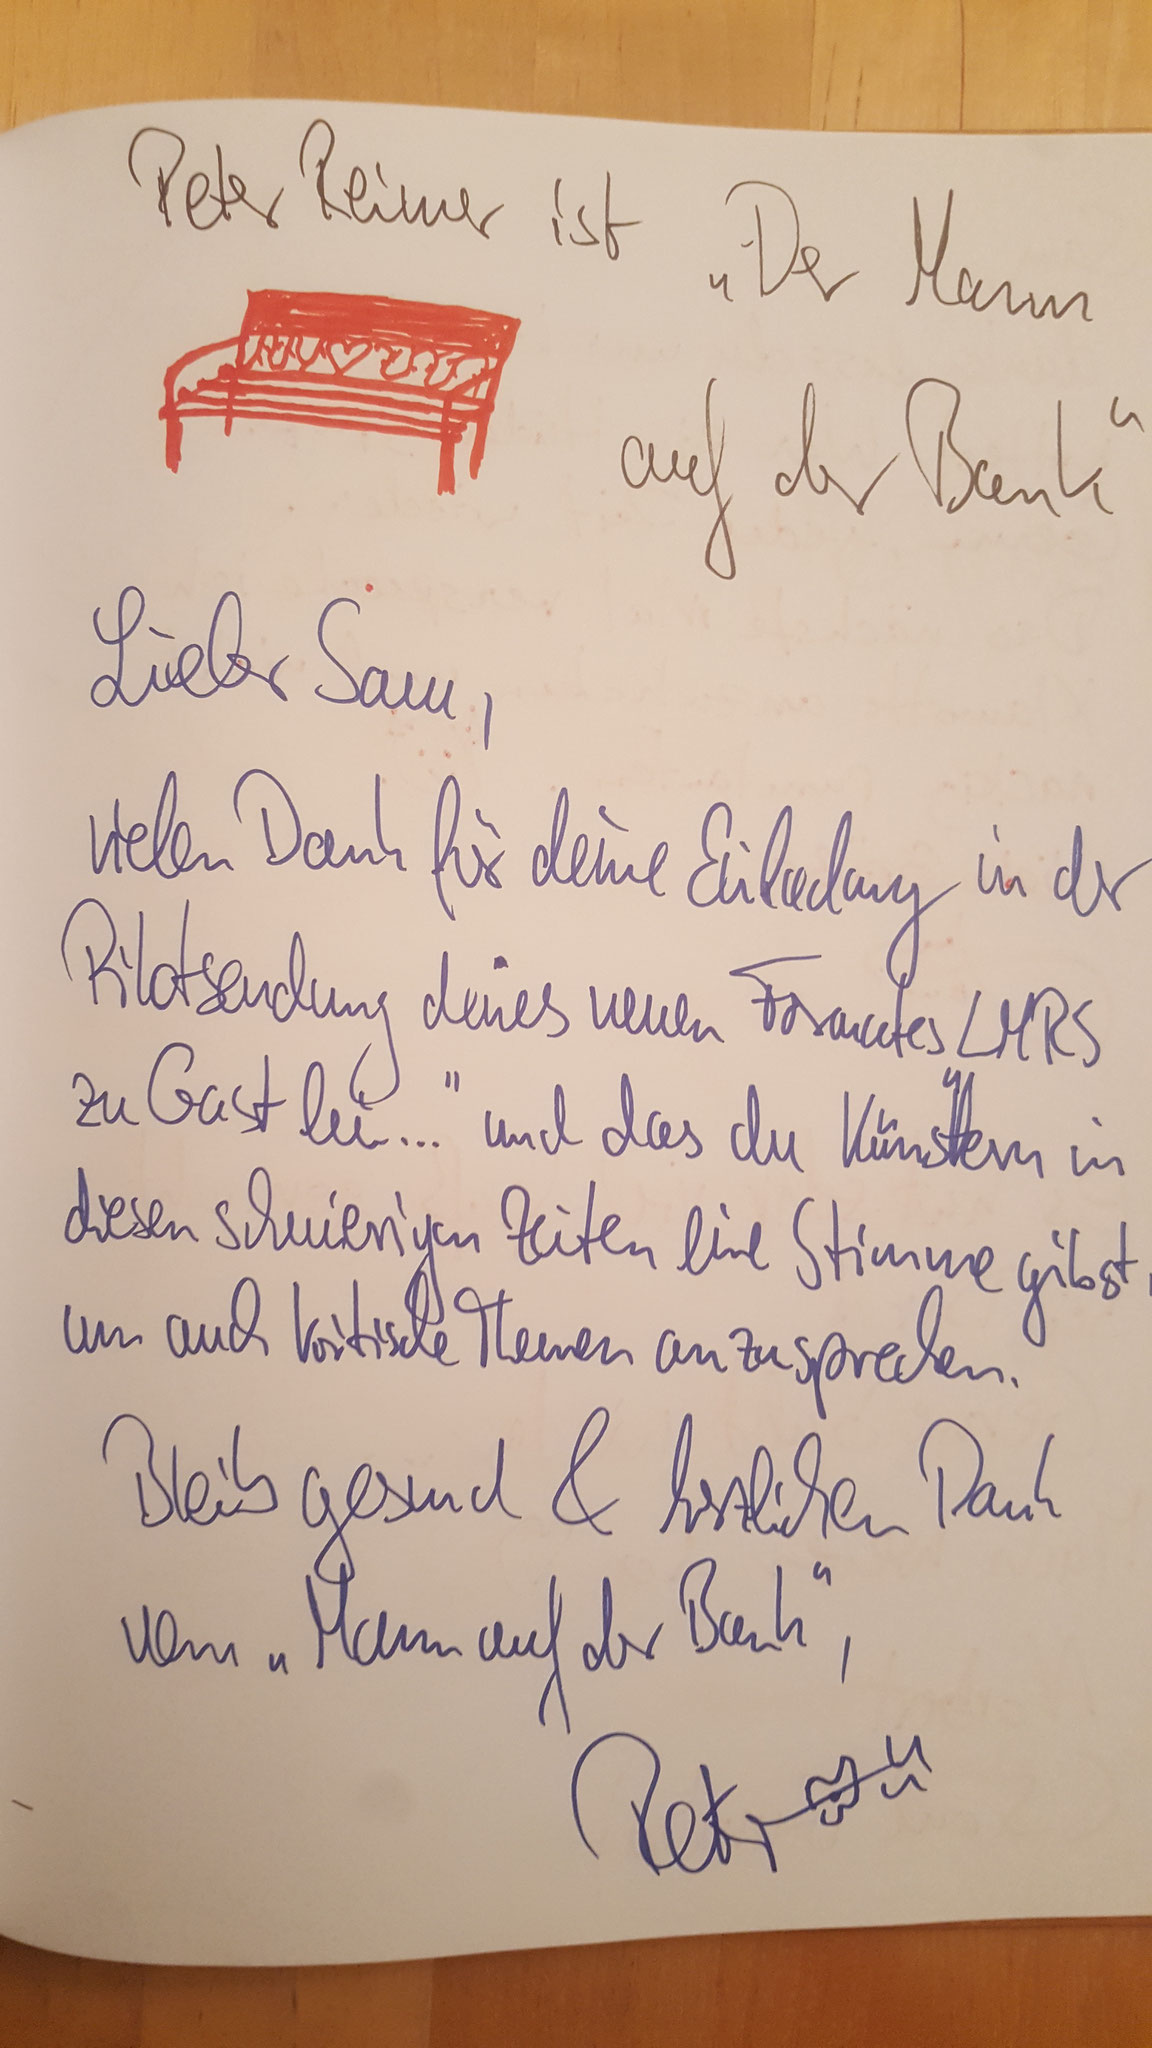 Peter Reimer ist „Der Mann
auf der Bank“
Lieber Sam,
vielen Dank für deine Einladung in der
Pilotsendung deines neuen Formates LMRS
zu Gast bei..." und das du Künstlern in
diesen schwierigen Zeiten eine Stimme gibst,
um auch kritische Themen anzusprechen.
Bleib gesund & herzlichen Dank
vom „Mann auf der Bank“,
Peter